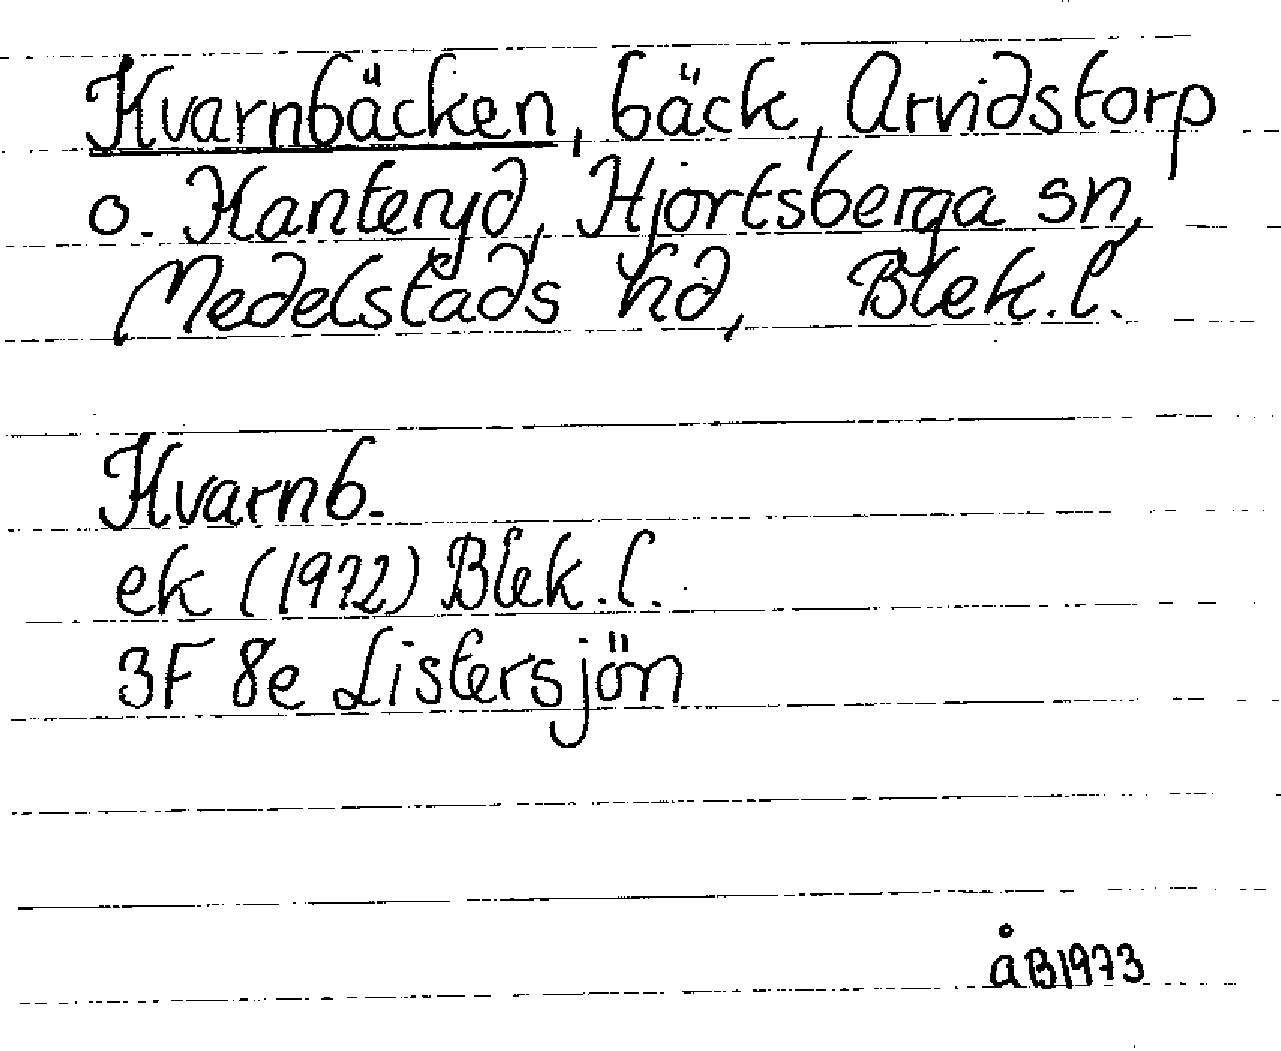 Kvarnbäcken, bäck, Arvidstorp
o. Kanteryd, Hjortsberga sn,
Medelstads hd, Blek.l.
Kvarnb.
ek (1972) Blek.l.
3F 8e Listersjön
åB1973